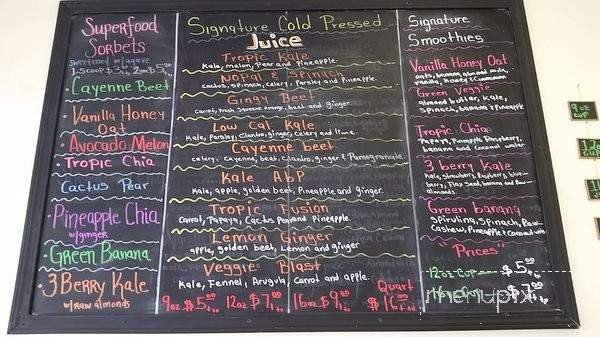 Superfood
Sorbets
sweetened w/agave
1-scoop $3
Cayenne Beet
Vanilla Honey
Oat
Avocado Melon
Tropic Chia
Cactus Pear
Pineapple Chia
w/ginger
Green Banana
3 Berry Kale
w/raw almonds
Signature Cold Pressed
Juice
Tropic Kale
Kale, melon, Pear and Pineapple
Nopal & Spinach
Cactus, spinach, Celery, Parsley and Pineapple
Gingy Beet
Carrot, beet and ginger
Low Cal Kale
Kale, Parsley, Cilantro, ginger, Celery and lime
Cayenne beet
celery, Cayenne, beet, Cilantro, ginger & Pomegranate
Kale ABP
Kale, apple, golden beet, Pineapple and ginger
Tropic Fusion
Carrot, Papaya, Cactus Pear and Pineapple
Lemon Ginger
apple, golden beet, Lemon and ginger
Veggie Blast
Kale, Fennel, Arugula, Carrot and apple
9oz $5.00 12oz $7.00 16oz $9.00 Quart $16.00
Signature
Smoothies
Vanilla Honey Oat
oats, banana, almond milk,
vanilla, honey & Cinnamon
Green Veggie
almond butter, Kale,
Spinach, banana & Pineapple
Tropic Chia
Papaya, Pineapple, Raspberry,
banana and Coconut water
3 berry Kale
Kale, Strawberry, Raspberry, blue-
berry, Flax Seed, banana and Raw
almonds
Green banana
Spirulina, Spinach, Raw
Cashew, Pineapple & Coconut water
"Prices"
12oz Cup $5.00
16oz Cup $7.00
menupix
9oz
cup